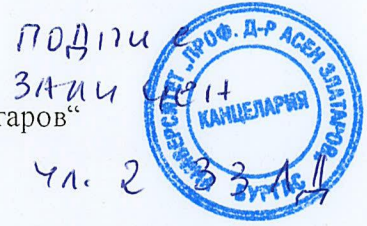 ПОДПИС
ЗАЛИЧЕН
гаров“
чл. 2 ЗЗЛД
УНИВЕРСИТЕТ „ПРОФ. Д-Р АСЕН ЗЛАТАРОВ“
КАНЦЕЛАРИЯ
БУРГАС